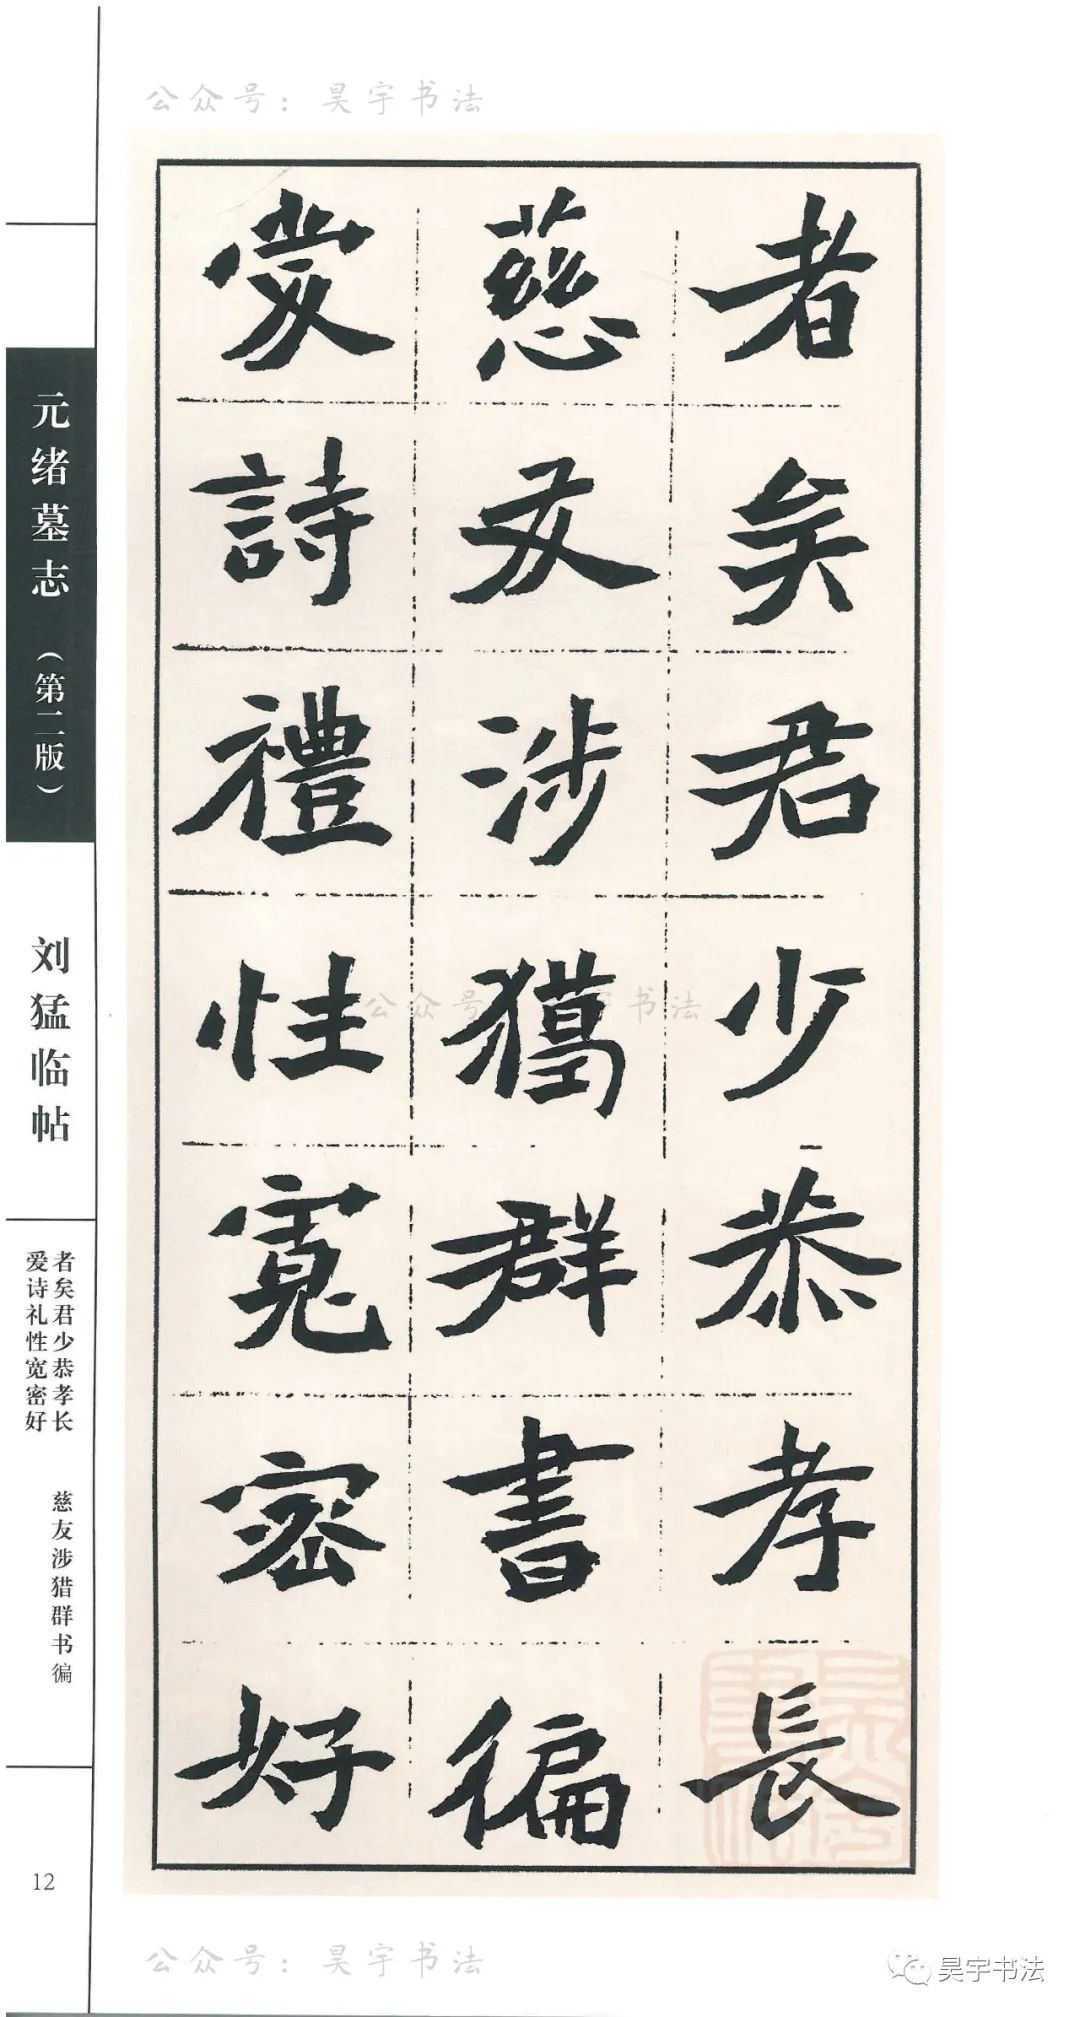 公众号：昊宇书法
者矣君少恭孝長
慈友涉獵群書徧
愛詩禮性寬密好
元绪墓志（第二版）
刘猛临帖
者矣君少恭孝长
慈友涉猎群书徧
爱诗礼性宽密好
12
公众号：昊宇书法
公众号：昊宇书法
昊宇书法